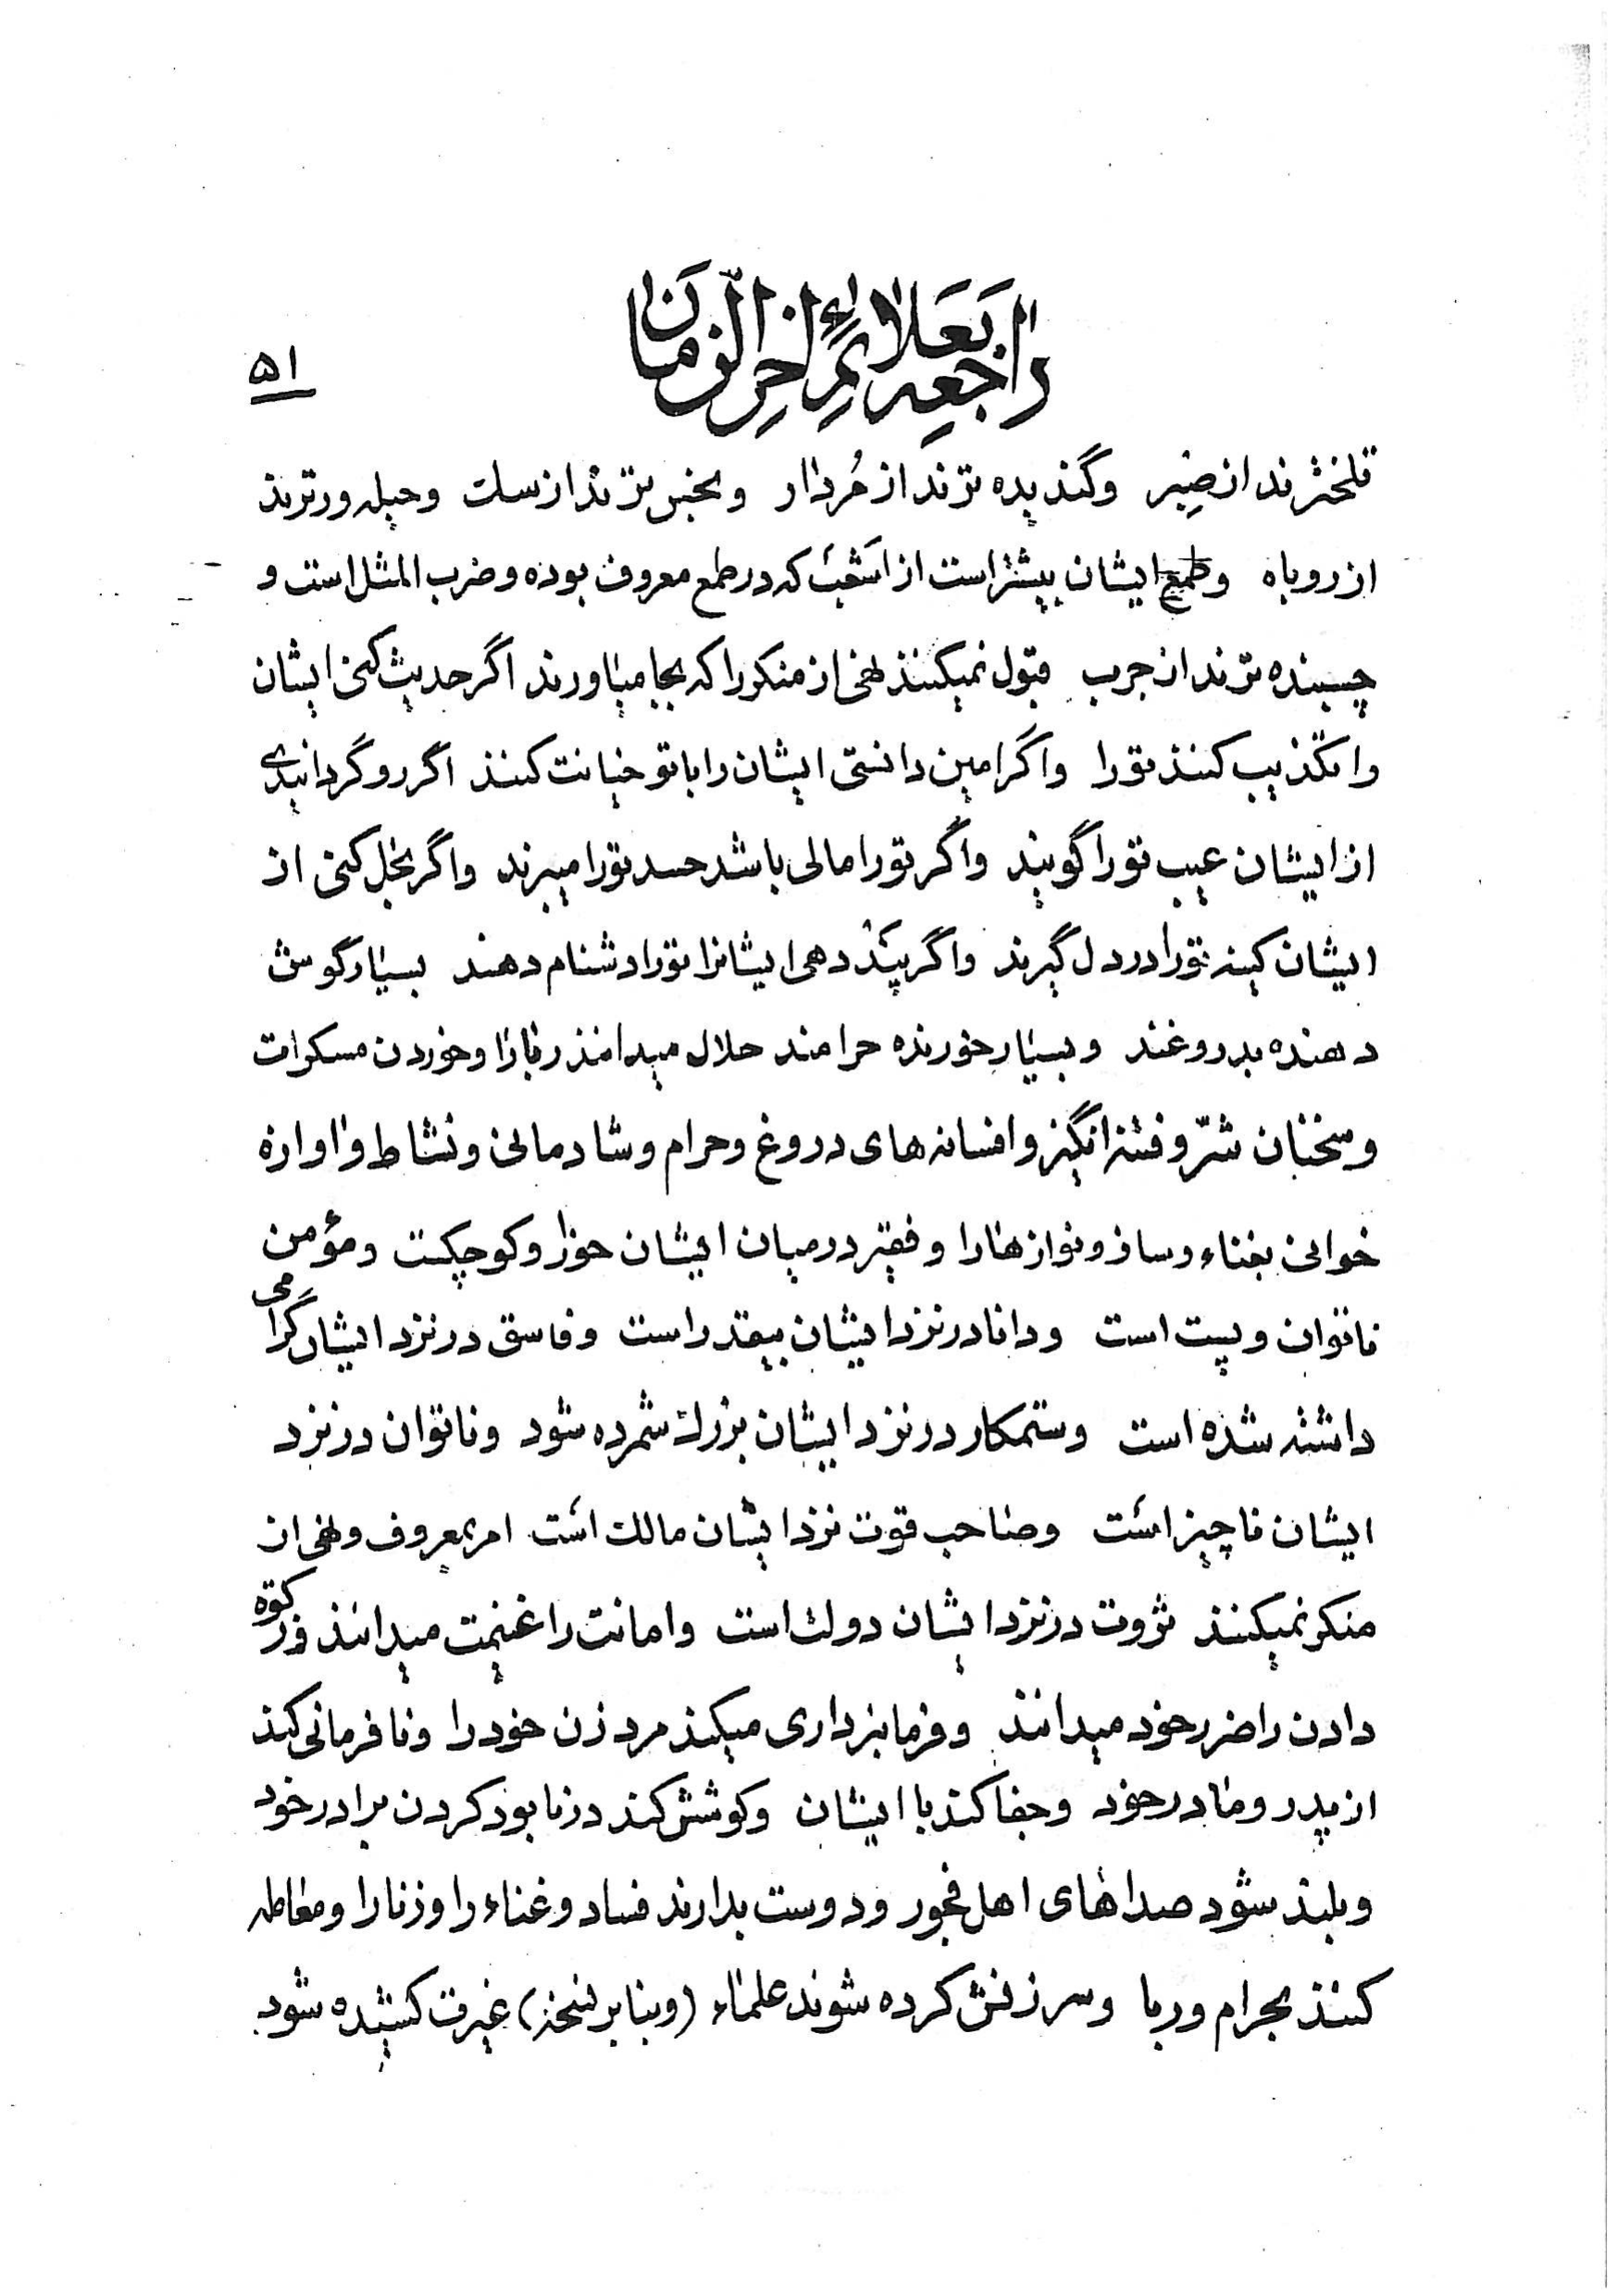 راجعه بعلائم اخر الزمان
۵۱
تلختر‌ند از صبر و گندیده ترند از مُردار و نجس ترند از سگ و حیله ورترند
از روباه و طمع ایشان بیشتر است از اَشعَب که در طمع معروف بوده و ضرب المثل است و
چسبنده ترند از جرب قبول نمیکنند نهی از منکر را که بجا میاورند اگر حدیث کنی ایشان
را تکذیب کنند تو را و اگر امین دانستی ایشان را با تو خیانت کنند اگر رو گردانیدی
از ایشان عیب تو را گویند و اگر تو را مالی باشد حسد تو را میبرند و اگر بخل کنی از
ایشان کینه تو را در دل گیرند و اگر پند دهی ایشانرا تو را دشنام دهند بسیار گوش
دهنده بدروغند و بسیار خورنده حرامند حلال میدانند زنا را و خوردن مسکرات
و سخنان شرّ و فتنه انگیز و افسانه های دروغ و حرام و شادمانی و نشاط و اوازه
خوانی بغناء و ساز و نوازها را و فقیر در میان ایشان خوار و کوچکست و مؤمن
ناتوان و پست است و دانا در نزد ایشان بیقدر است و فاسق در نزد ایشان گرامی
داشته شده است و ستمکار در نزد ایشان بزرگ شمرده شود و ناتوان در نزد
ایشان ناچیز است و صاحب قوت نزد ایشان مالک است امر بمعروف و نهی از
منکر نمیکنند ثروت در نزد ایشان دولت است و امانت را غنیمت میدانند و زکوة
دادن را ضرر خود میدانند و فرمانبرداری میکند مرد زن خود را و نافرمانی کند
از پدر و مادر خود و جفا کند با ایشان و کوشش کند در نابود کردن برادر خود
و بلند شود صداهای اهل فجور و دوست بدارند فساد و غناء را و زنا را و معامله
کنند بحرام و ربا و سرزنش کرده شوند علماء (و بنا بر نسخه) غیرت کشیده شود